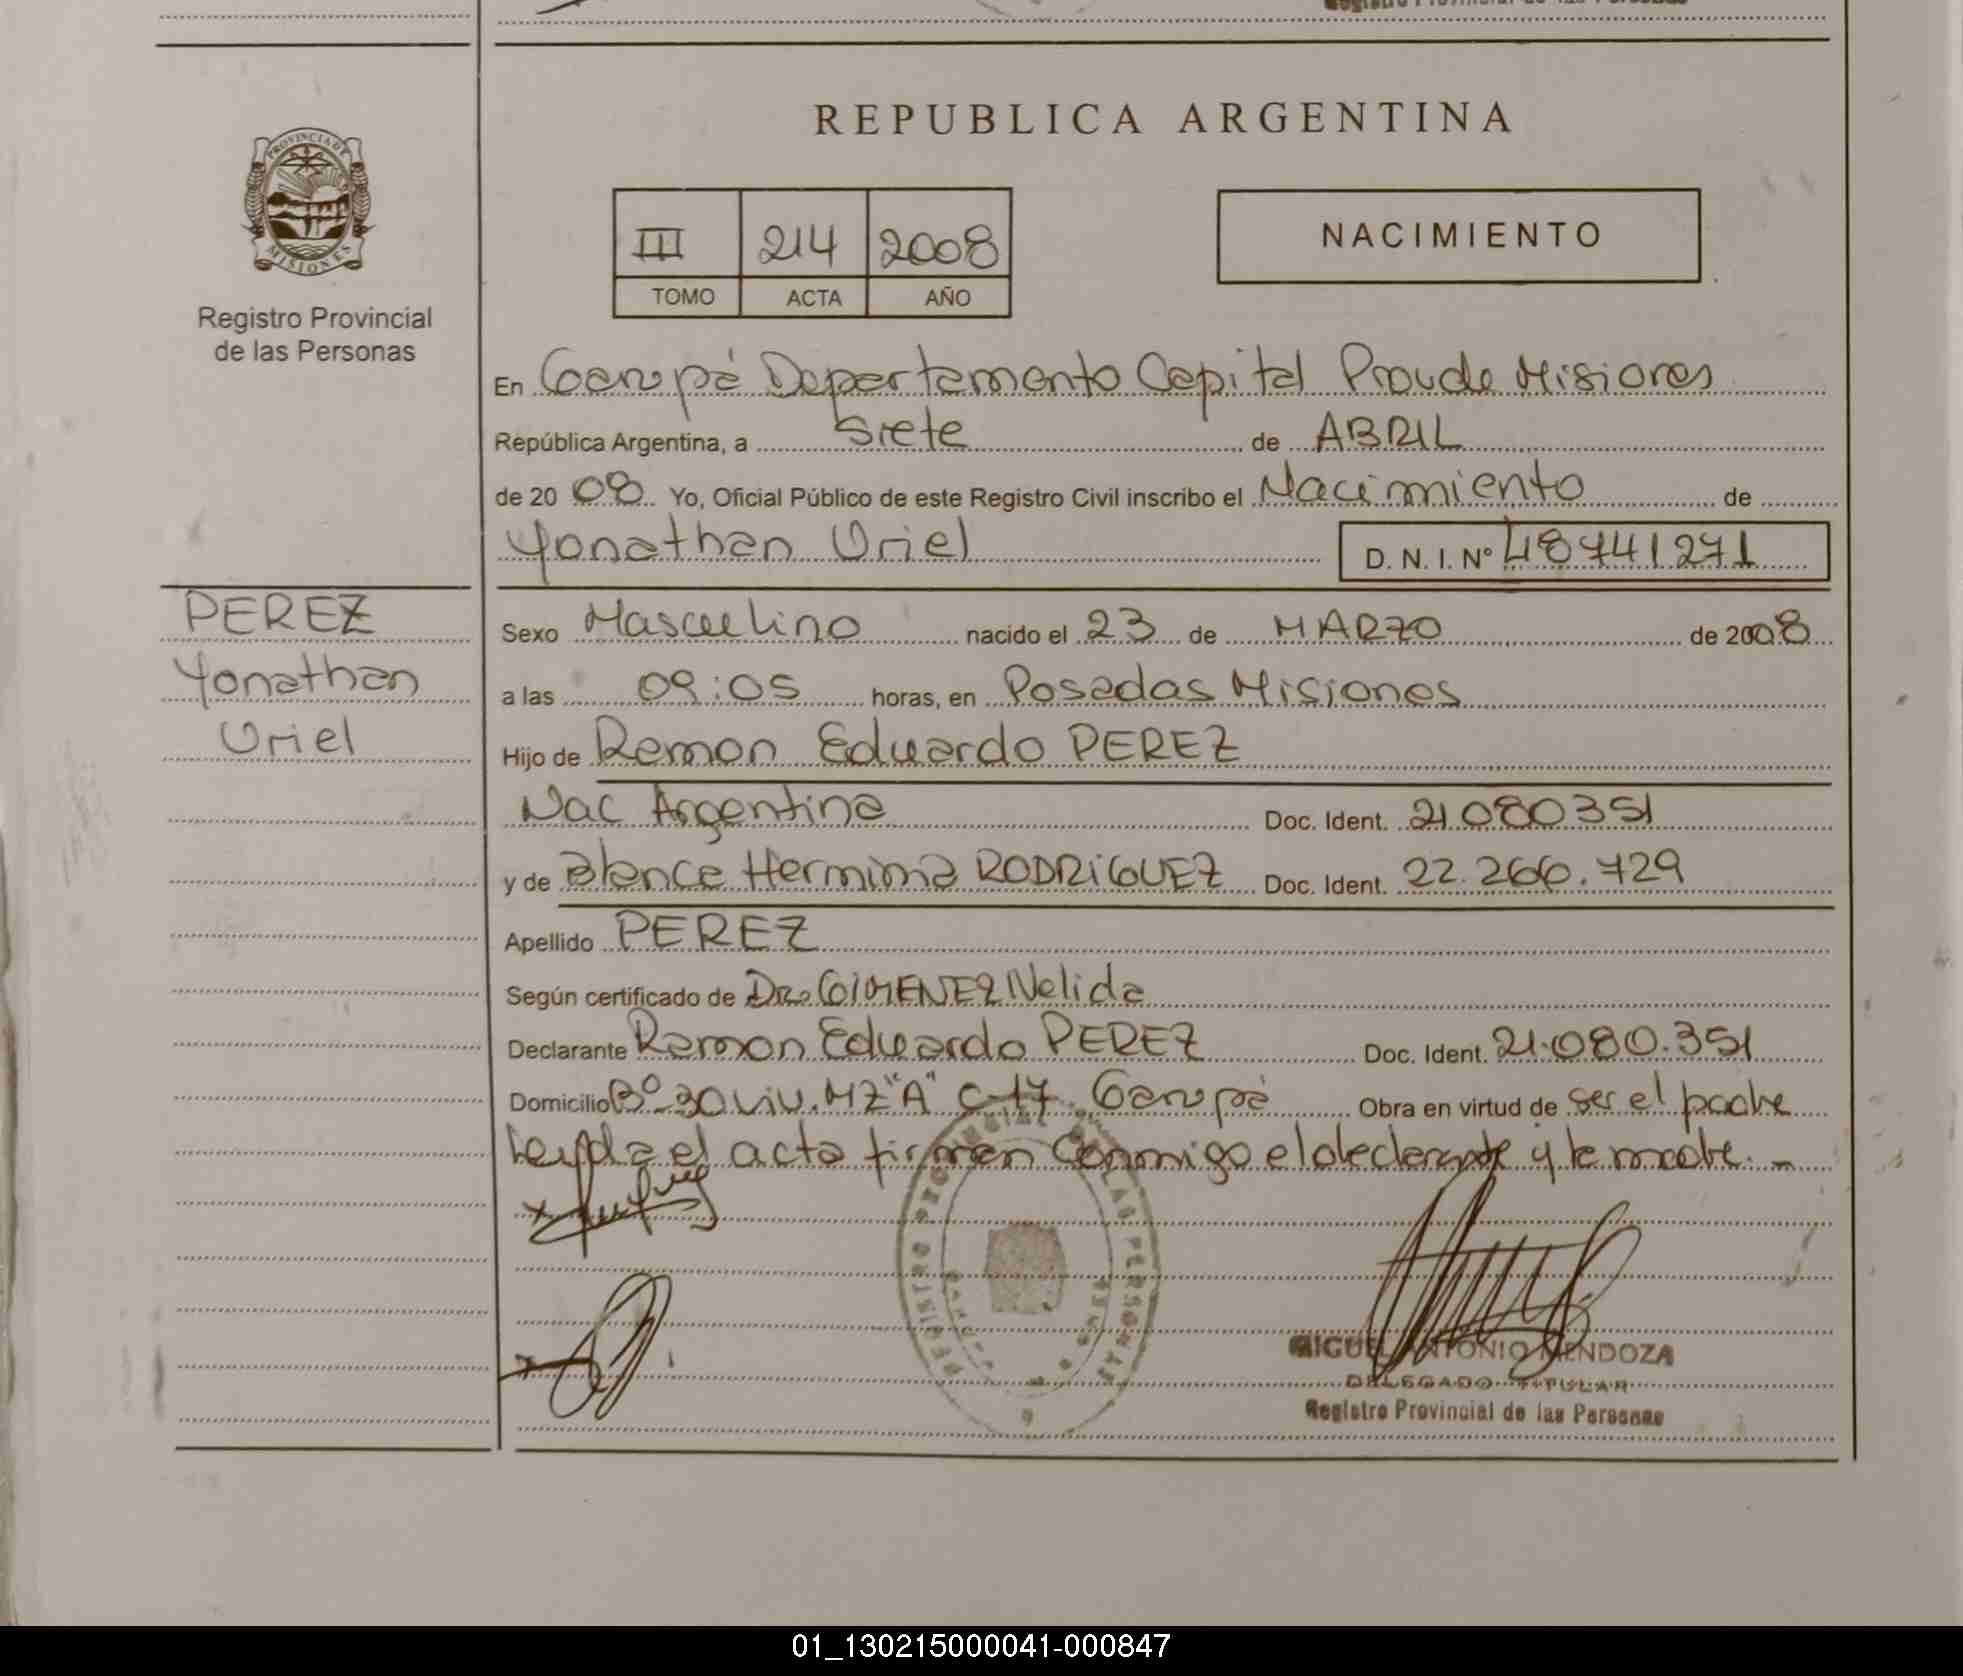 Registro Provincial de las Personas
PROVINCIA DE
MISIONES
Registro Provincial
de las Personas
REPUBLICA ARGENTINA
III 214 2008
TOMO ACTA AÑO
NACIMIENTO
En Garupá Departamento Capital Prov de Misiones
República Argentina, a siete de ABRIL
de 2008 Yo, Oficial Público de este Registro Civil inscribo el Nacimiento de
Yonathan Uriel D. N. I. Nº 48741271
PEREZ
Yonathan
Uriel
Sexo Masculino nacido el 23 de MARZO de 2008
a las 09:05 horas, en Posadas Misiones
Hijo de Ramon Eduardo PEREZ
Nac Argentina Doc. Ident. 21.080351
y de Blanca Herminia RODRIGUEZ Doc. Ident. 22.266.729
Apellido PEREZ
Según certificado de Dra GIMENEZ Nelida
Declarante Ramon Eduardo PEREZ Doc. Ident. 21.080.351
Domicilio Bº 30 Viv. MZ "A" C-17 Garupá Obra en virtud de ser el padre
Leyda el acta firman conmigo el declarante y la madre. -
REGISTRO PROVINCIAL DE LAS PERSONAS
MIGUEL ANTONIO MENDOZA
DELEGADO TITULAR
Registro Provincial de las Personas
01_130215000041-000847